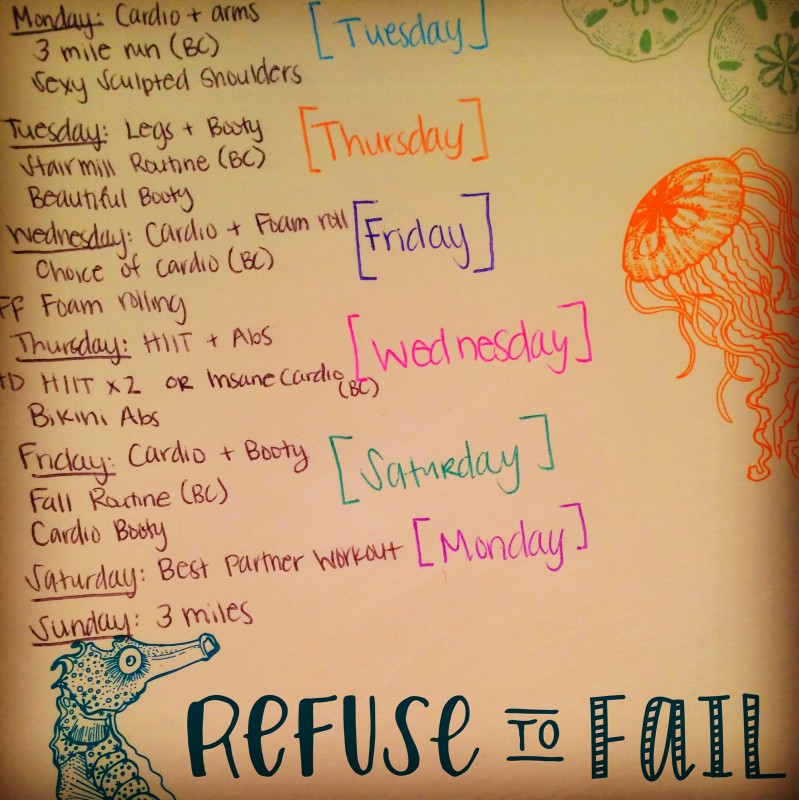 Monday: Cardio + arms [Tuesday]
3 mile run (BC)
Sexy Sculpted Shoulders
Tuesday: Legs + Booty [Thursday]
Stairmill Routine (BC)
Beautiful Booty
Wednesday: Cardio + Foam roll [Friday]
Choice of cardio (BC)
FF Foam rolling
Thursday: HIIT + Abs [Wednesday]
HIIT x2 OR Insane Cardio (BC)
Bikini Abs
Friday: Cardio + Booty [Saturday]
Fall Routine (BC)
Cardio Booty
Saturday: Best Partner Workout [Monday]
Sunday: 3 miles
REFUSE TO FAIL